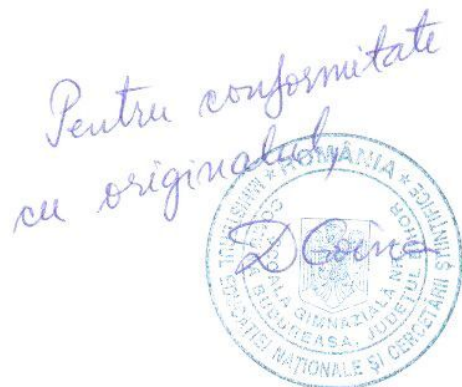 Pentru conformitate
cu originalul,
ROMÂNIA
MINISTERUL EDUCAȚIEI NAȚIONALE ȘI CERCETĂRII ȘTIINȚIFICE
ȘCOALA GIMNAZIALĂ NR.
JUDEȚUL BIHOR